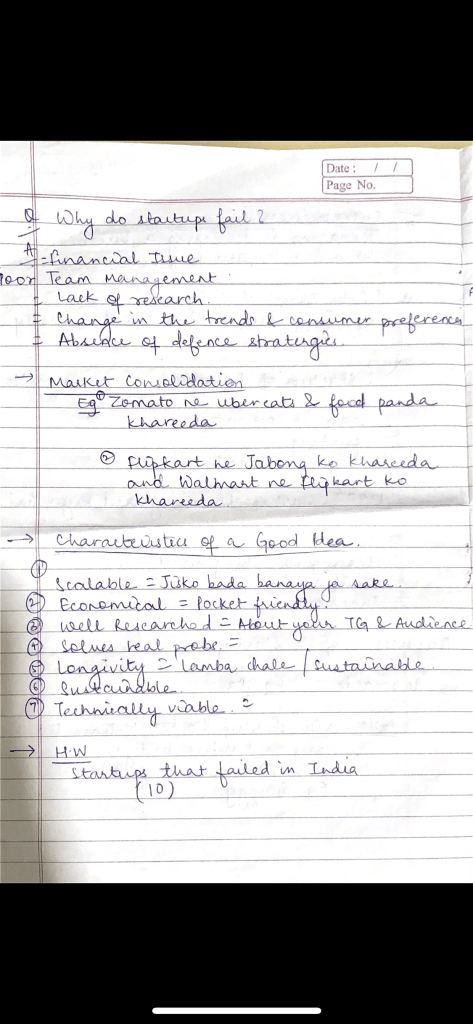 Date : / /
Page No.
Q Why do startups fail ?
A - Financial Issue
Poor Team Management
- Lack of research.
- Change in the trends & consumer preferences
- Absence of defence stratergies.
→ Market Consolidation
Eg ① Zomato ne uber eats & food panda
khareeda
② Flipkart ne Jabong ko khareeda
and Walmart ne flipkart ko
khareeda.
→ Characteristics of a Good Idea.
① Scalable = Jisko bada banaya ja sake.
② Economical = Pocket friendly.
③ Well Researched = About your TG & Audience
④ Solves real probs. =
⑤ Longivity = Lamba chale / Sustainable.
⑥ Sustainable.
⑦ Technically viable. =
→ H.W
Startups that failed in India
(10)